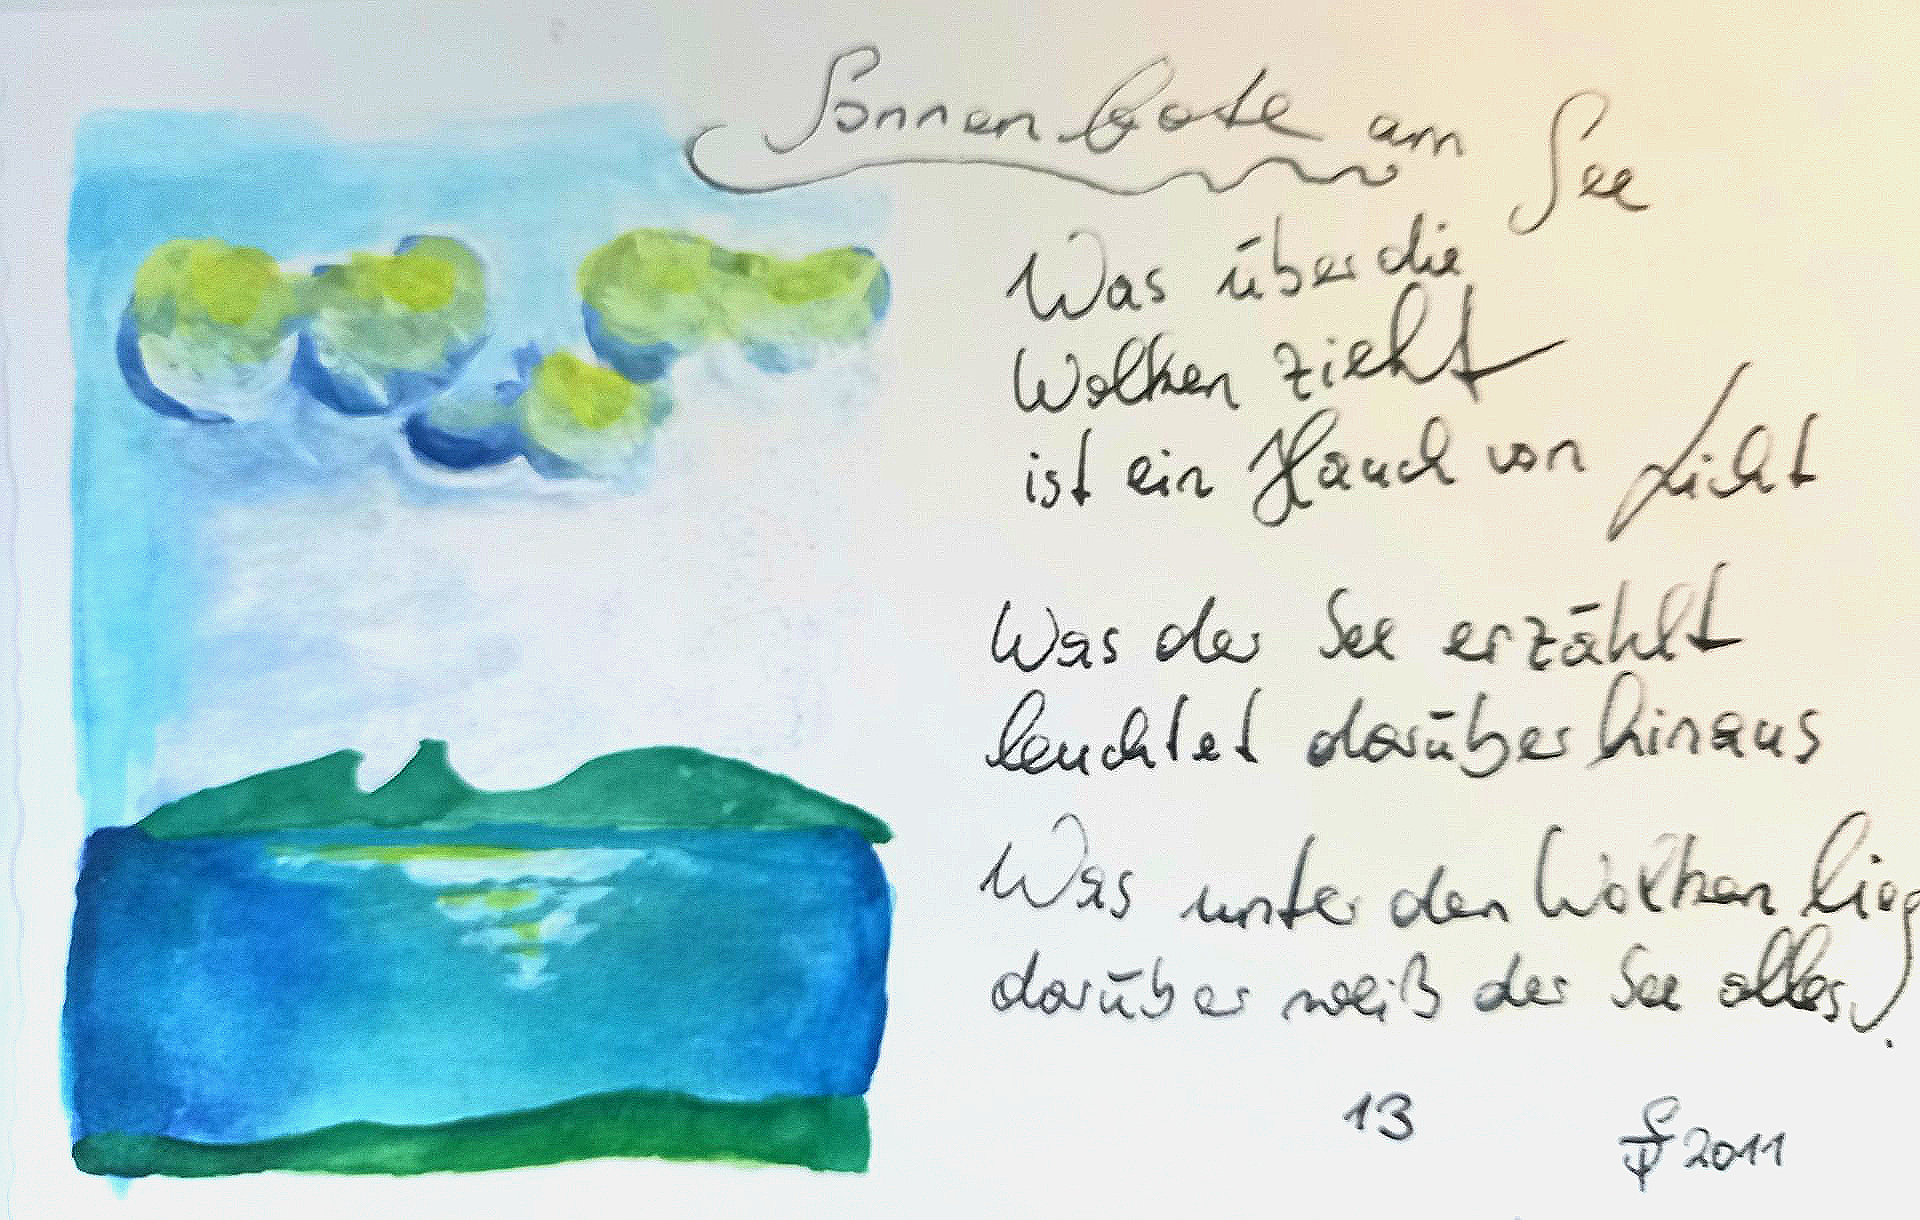 Sonnenbote am See
Was über die
Wolken zieht
ist ein Hauch von Licht
Was der See erzählt
leuchtet darüber hinaus
Was unter den Wolken liegt
darüber weiß der See alles.
13
2011